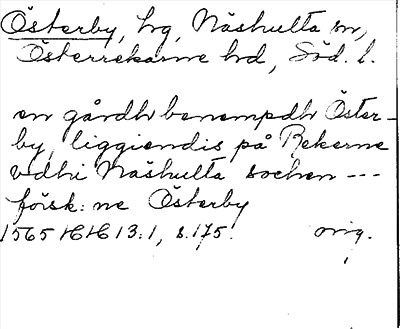 Österby, hg, Näshulta sn,
Österrekarne hd, Söd. l.
en gårdh benempdh Öster-
by, liggiendis på Rekerne
vdhi Näshulta sochen ---
försk: ne Österby
1565 HH 13:1, s. 175. orig.